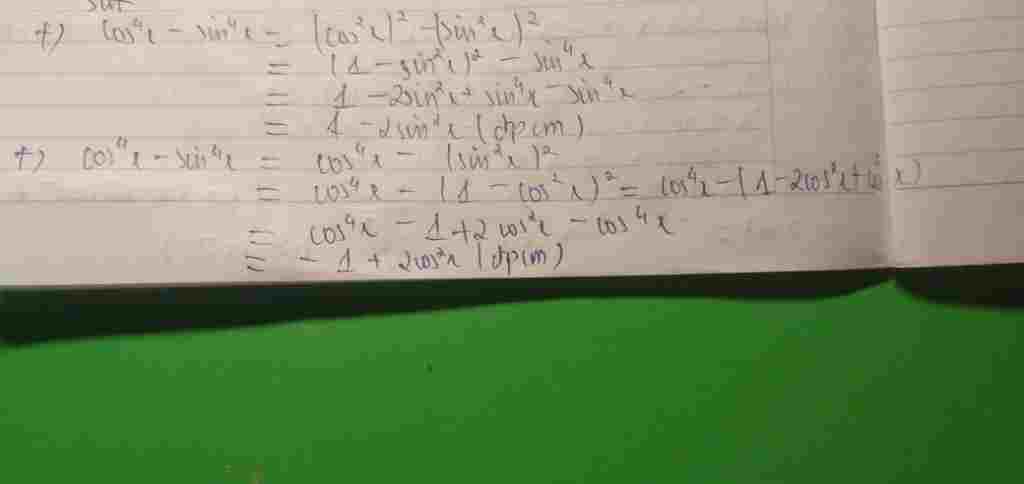 +) cos⁴x - sin⁴x = (cos²x)² - (sin²x)²
= (1 - sin²x)² - sin⁴x
= 1 - 2sin²x + sin⁴x - sin⁴x
= 1 - 2sin²x (đpcm)
+) cos⁴x - sin⁴x = cos⁴x - (sin²x)²
= cos⁴x - (1 - cos²x)² = cos⁴x - (1 - 2cos²x + cos⁴x)
= cos⁴x - 1 + 2cos²x - cos⁴x
= - 1 + 2cos²x (đpcm)